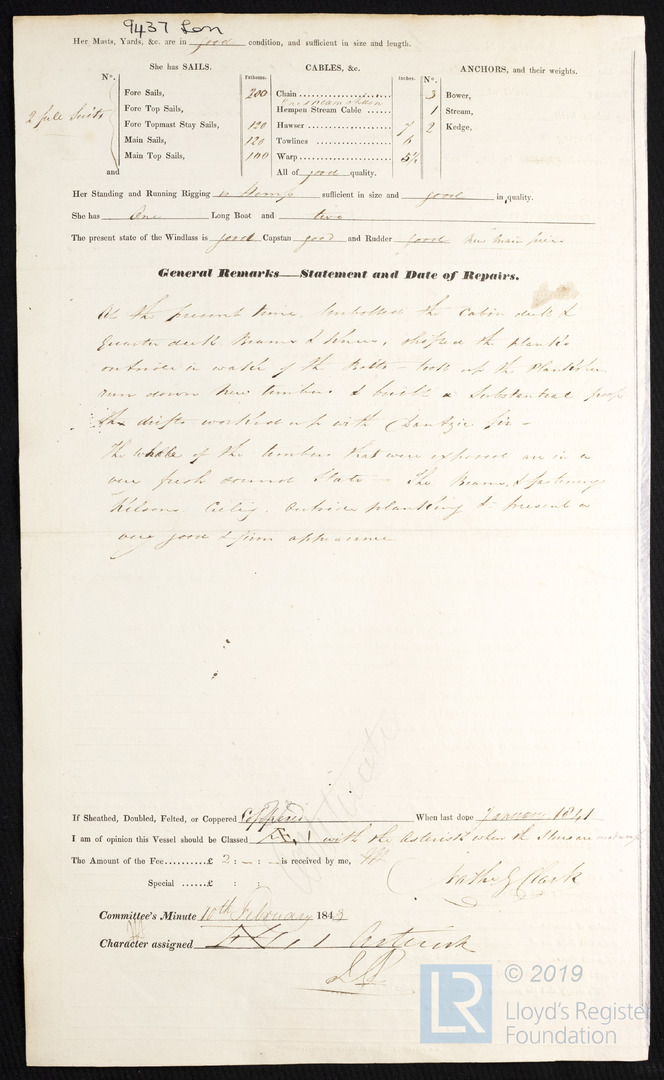 9437 Lon
Her Masts, Yards, &c. are in good condition, and sufficient in size and length.
She has SAILS.
CABLES, &c.
ANCHORS, and their weights.
N°. Fathoms. Inches. N°.
2 full Suits
Fore Sails, 200 Chain 3 Bower,
One stream chain
Fore Top Sails, Hempen Stream Cable 1 Stream,
Fore Topmast Stay Sails, 120 Hawser 7 2 Kedge,
Main Sails, 120 Towlines 6
Main Top Sails, 100 Warp 5½
and All of good quality.
Her Standing and Running Rigging is Hemp sufficient in size and good in quality.
She has One Long Boat and two
The present state of the Windlass is good Capstan good and Rudder good New main piece
General Remarks—Statement and Date of Repairs.
At the present time, the Cabin deck &
Quarter deck Beams & Knees, shifted the planks
outside in wake of the Bolts – took up the Planksheer
run down new timbers & built a Substantial poop
the drifts worked up with Dantzic fir –
The whole of the timbers that were exposed are in a
very fresh sound State – The Beams, & fastenings
Kelsons Ceiling Outside planking &c present a
very good & firm appearance
If Sheathed, Doubled, Felted, or Coppered Coppered When last done January 1841
I am of opinion this Vessel should be Classed Æ, 1 with the Asterisk when the Stores are made up
The Amount of the Fee £ 2 : – : – is received by me,
Special £ : :
Clark
Committee's Minute 10th February 1843
Character assigned Æ 1 Asterisk
© 2019
LR
Lloyd's Register
Foundation